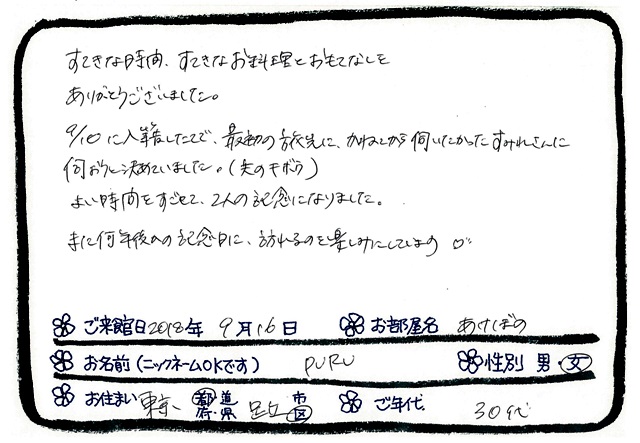 すてきな時間、すてきなお料理とおもてなしを
ありがとうございました。
9/10に入籍したので、最初の旅先に、かねてから伺いたかったすみれさんに
伺おうと決めていました。(夫のキボウ)
よい時間をすごせて、2人の記念になりました。
また何年後かの記念日に、訪れるのを楽しみにしています ♡
ご来館日 2018年 9月16日 お部屋名 あけぼの
お名前(ニックネームOKです) PURU 性別 男・女
お住まい 東京 都道府・県 足立 市区 ご年代 30代